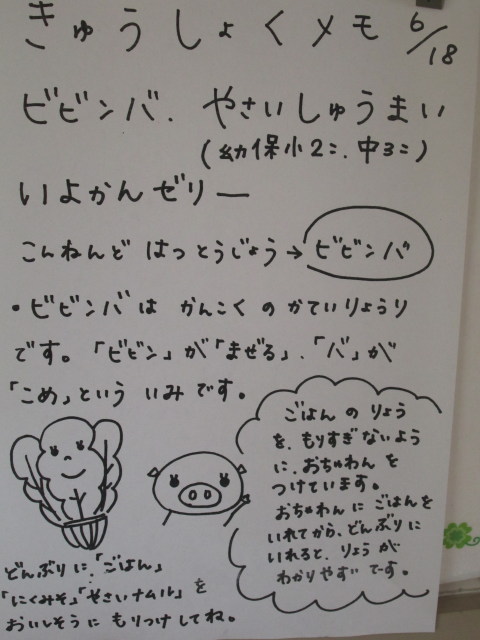 きゅうしょくメモ 6/18
ビビンバ. やさいしゅうまい
(幼保小2コ.中3コ)
いよかんゼリー
こんねんど はっとうじょう→ビビンバ
・ビビンバは かんこくのかていりょうり
です。「ビビン」が「まぜる」.「バ」が
「こめ」という いみです。
ごはんのりょう
を、もりすぎないよう
に、おちゃわんを
つけています。
おちゃわんに ごはんを
いれてから、どんぶりに
いれると、りょうが
わかりやすいでーす。
どんぶりに「ごはん」
「にくみそ」「やさいナムル」を
おいしそうに もりつけしてね。